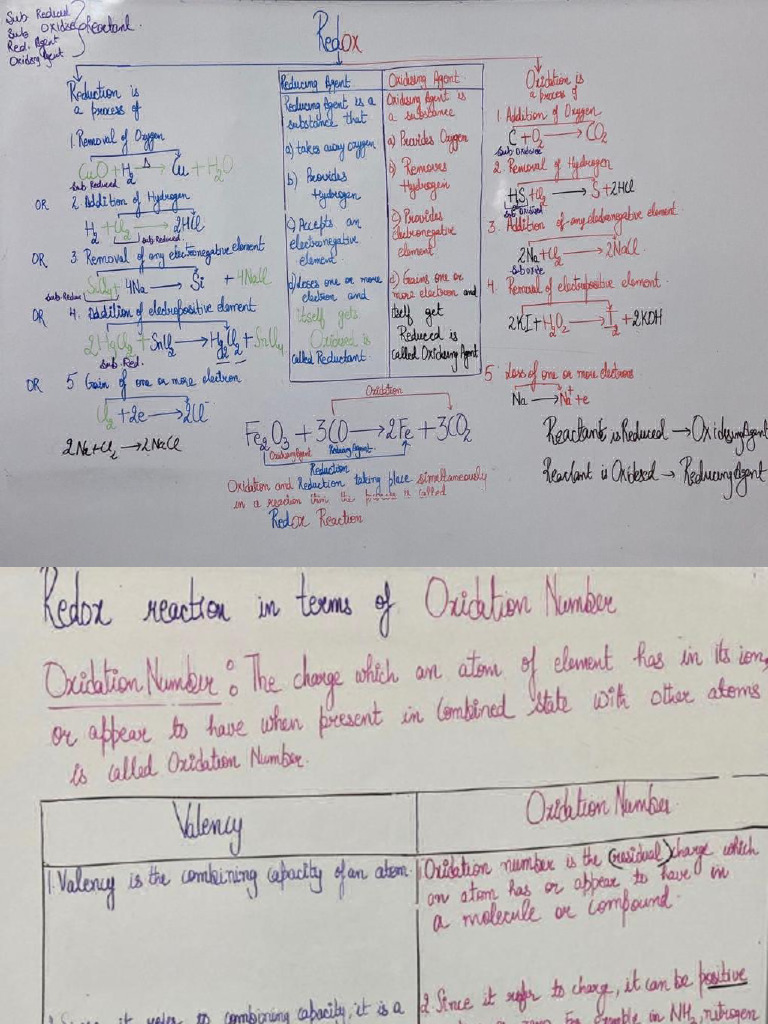 Sub Reduced
Sub Oxidise
Red. Agent
Oxidising Agent
Reactant.
Redox
Reduction is
a process of
1. Removal of Oxygen
CuO + H2 Δ → Cu + H2O
Sub Reduced
OR 2. Addition of Hydrogen
H2 + Cl2 → 2HCl
Sub Reduced.
OR 3. Removal of any electronegative element
+ 4Na → Si + 4NaCl
OR 4. Addition of electropositive element
2HgCl2 + SnCl2 → Hg2Cl2 + SnCl4
Sub. Red.
OR 5 Gain of one or more electron
Cl2 + 2e → 2Cl-
2Na + Cl2 → 2NaCl
Reducing Agent
Reducing Agent is a
substance that
a) takes away oxygen
b) Provides
Hydrogen
c) Accepts an
electronegative
element
d) loses one or more
electron and
itself gets
Oxidised is
called Reductant.
Oxidising Agent
Oxidising Agent is
a substance
a) Provides Oxygen
b) Removes
Hydrogen
c) Provides
electronegative
element
d) Gains one or
more electron and
itself get
Reduced is
called Oxidising Agent
Oxidation is
a process of
1. Addition of Oxygen
C + O2 → CO2
Sub Oxidise
2. Removal of Hydrogen
+ Cl2 → S + 2HCl
Sub Oxidised
3. Addition of any electronegative element
2Na + Cl2 → 2NaCl.
4. Removal of electropositive element.
2KI + H2O2 → I2 + 2KOH
5 Loss of one or more electrons
Na → Na+ + e
Oxidation
Fe2O3 + 3CO → 2Fe + 3CO2
Oxidising Agent Reducing Agent
Reduction
Oxidation and Reduction taking place simultaneously
in a reaction then the is called
Redox Reaction
Reactant is Reduced → Oxidising Agent
Reactant is Oxidesed → Reducing Agent
Redox reaction in terms of Oxidation Number
Oxidation Number : The charge which an atom of element has in its ion,
or appear to have when present in Combined state with other atoms
is called Oxidation Number.
Valency
Oxidation Number
1. Valency is the combining capacity of an atom.
1. Oxidation number is the (residual) charge which
an atom has or appear to have in
a molecule or compound.
refer to combining capacity, it is a
2. Since it refer to charge, it can be positive
in NH3 nitrogen